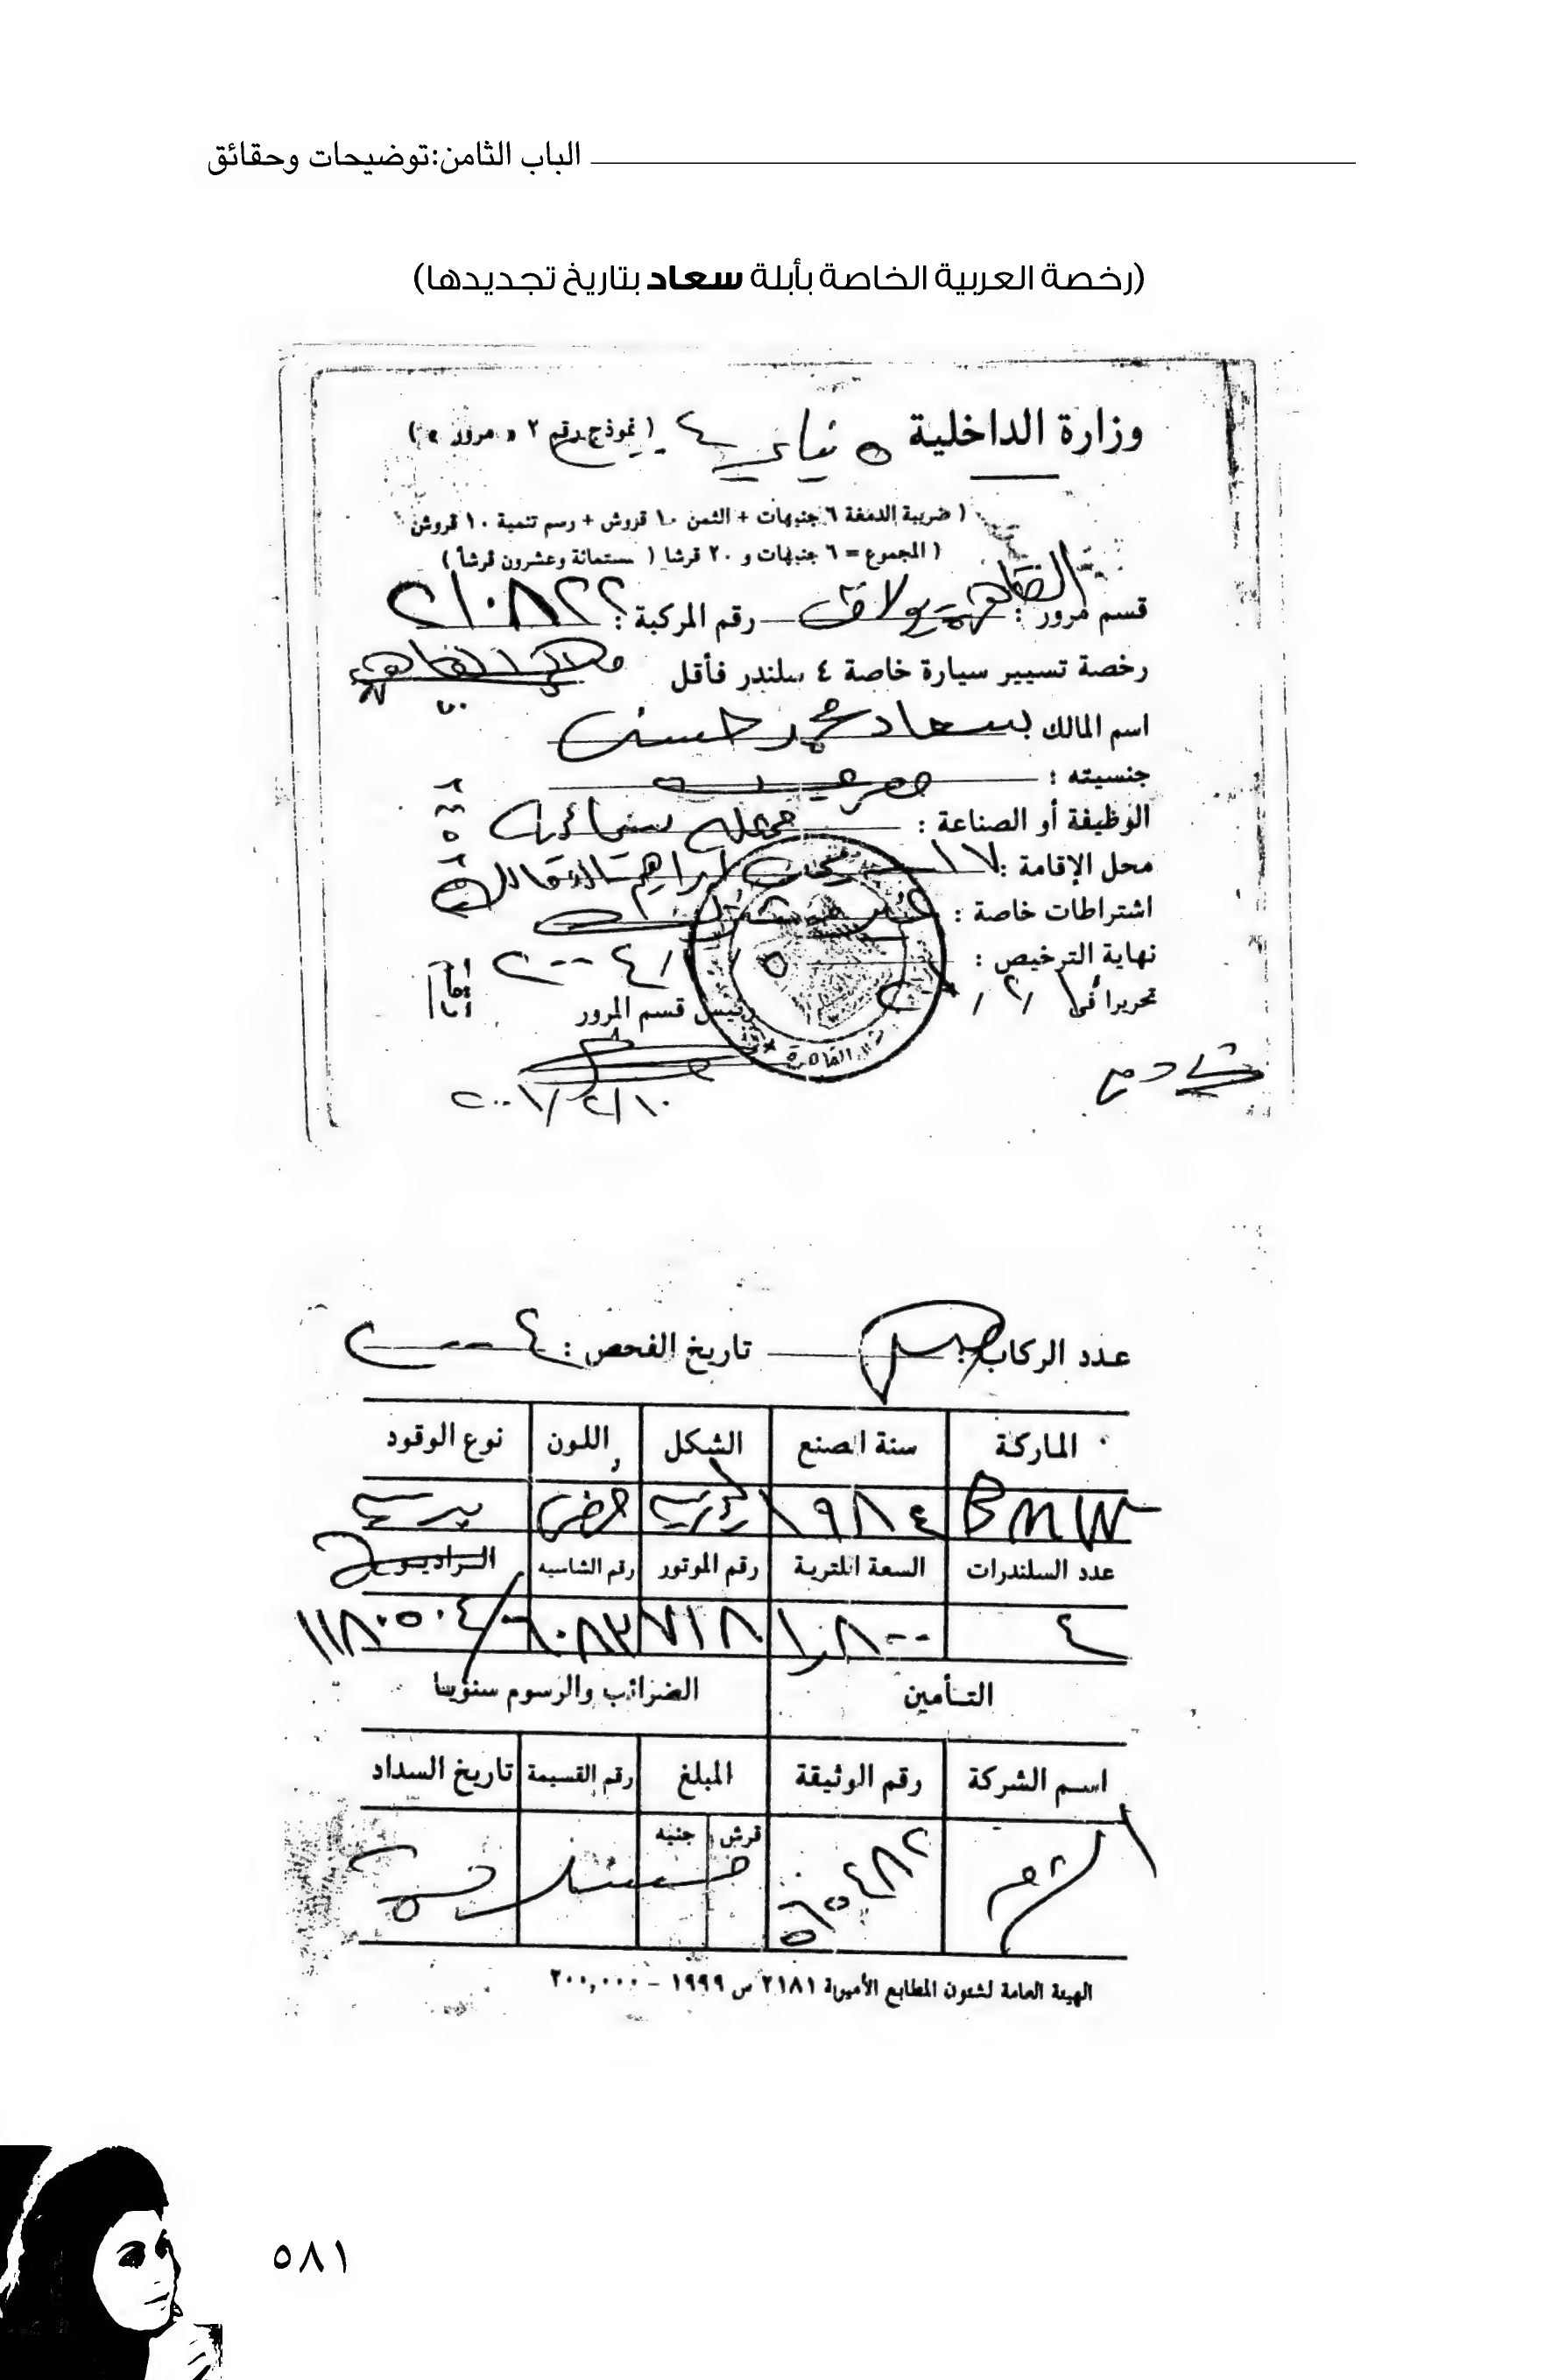 الباب الثامن:توضيحات وحقائق
(رخصة العربية الخاصة بأبلة سعاد بتاريخ تجديدها)
وزارة الداخلية ( نموذج رقم ٢ « مرور » )
( ضريبة الدمغة ٦ جنيهات + الثمن ١٠ قروش + رسم تنمية ١٠ قروش
( المجموع = ٦ جنيهات و ٢٠ قرشا ( ستمائة وعشرون قرشاً )
قسم مرور : القاهرة بولاق رقم المركبة : ٢١٠٨٢٢
رخصة تسيير سيارة خاصة ٤ سلندر فأقل ملاكى القاهرة
اسم المالك سعاد محمد حسنى
جنسيته : مصرية
الوظيفة أو الصناعة : ممثلة سينمائية
محل الإقامة : ١٧ ابراهيم
اشتراطات خاصة :
نهاية الترخيص :
تحريرا فى
رئيس قسم المرور
٢٠٠١/٢/١٠
عدد الركاب : تاريخ الفحص : ٢٠٠٤
الماركة سنة الصنع الشكل اللون نوع الوقود
BMW ١٩٨٤
عدد السلندرات السعة اللترية رقم الموتور رقم الشاسيه الراديو
٤ ١٫٨٠٠
التأمين الضرائب والرسوم سنويا
اسم الشركة رقم الوثيقة المبلغ رقم القسيمة تاريخ السداد
قرش جنيه
الهيئة العامة لشئون المطابع الأميرية ٢١٨١ س ١٩٩٩ – ٢٠٠,٠٠٠
٥٨١